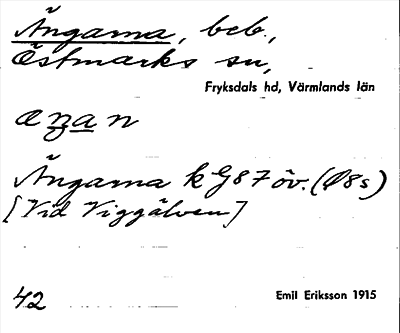 Ängarna, beb.,
Östmarks sn,
Fryksdals hd, Värmlands län
aŋan
Ängarna k G87 öv. (Ø8s)
[Vid Viggälven]
42
Emil Eriksson 1915